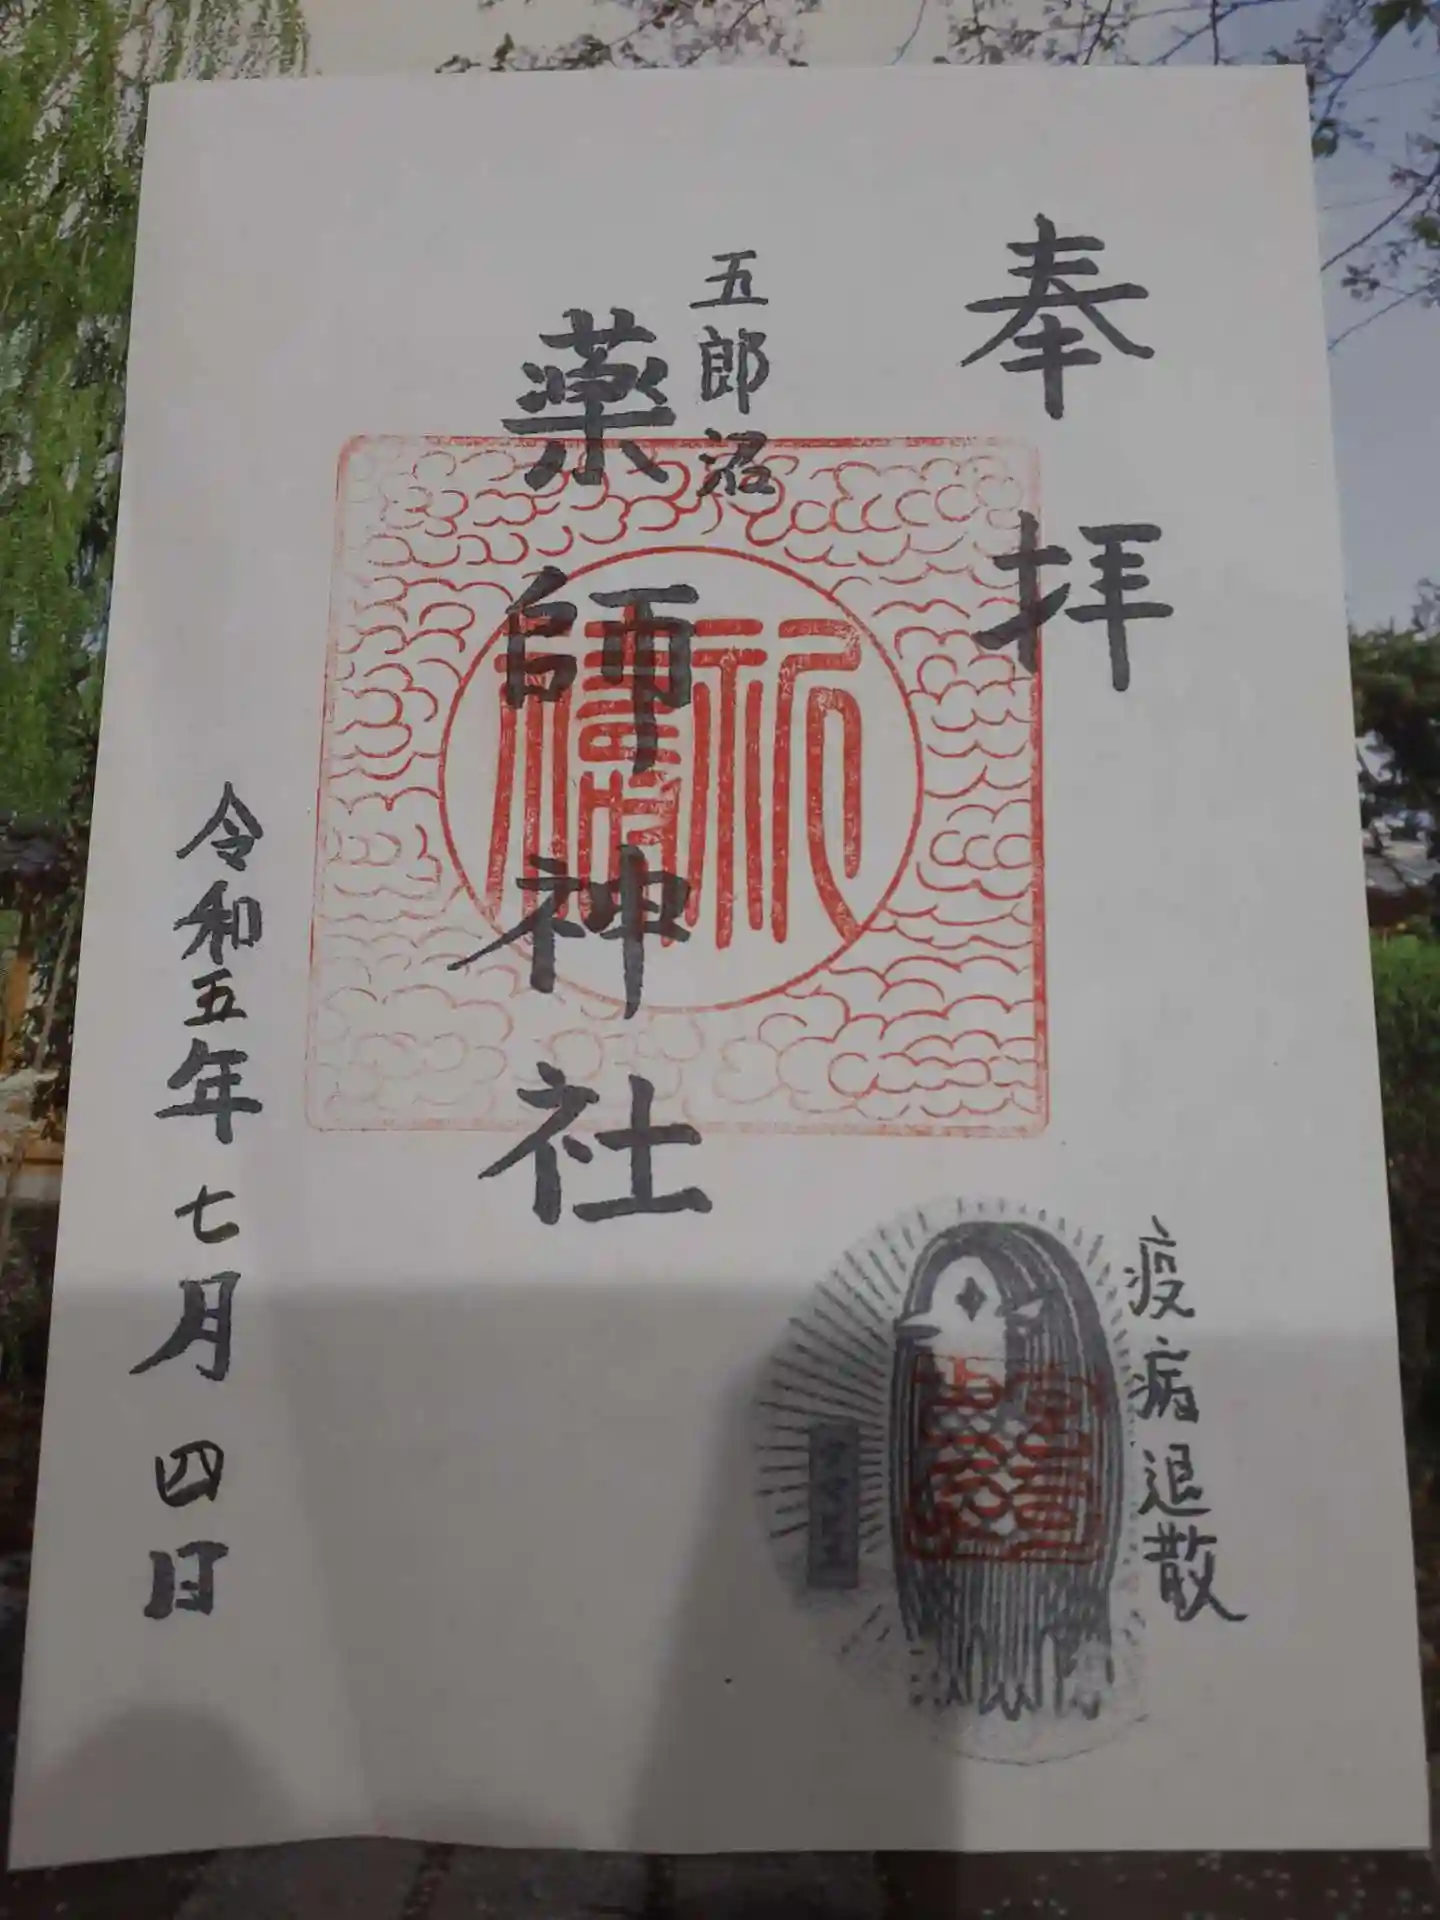 奉拝
五郎沼
薬師神社
疫病退散
令和五年七月四日